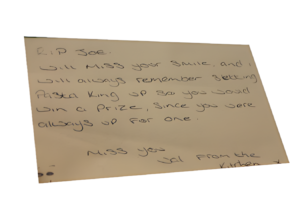 R.I.P Joe
will miss your smile, and i
will always remember
King up so you would
win a prize, since you were
always up for one.
Miss you
from the
Kitchen x